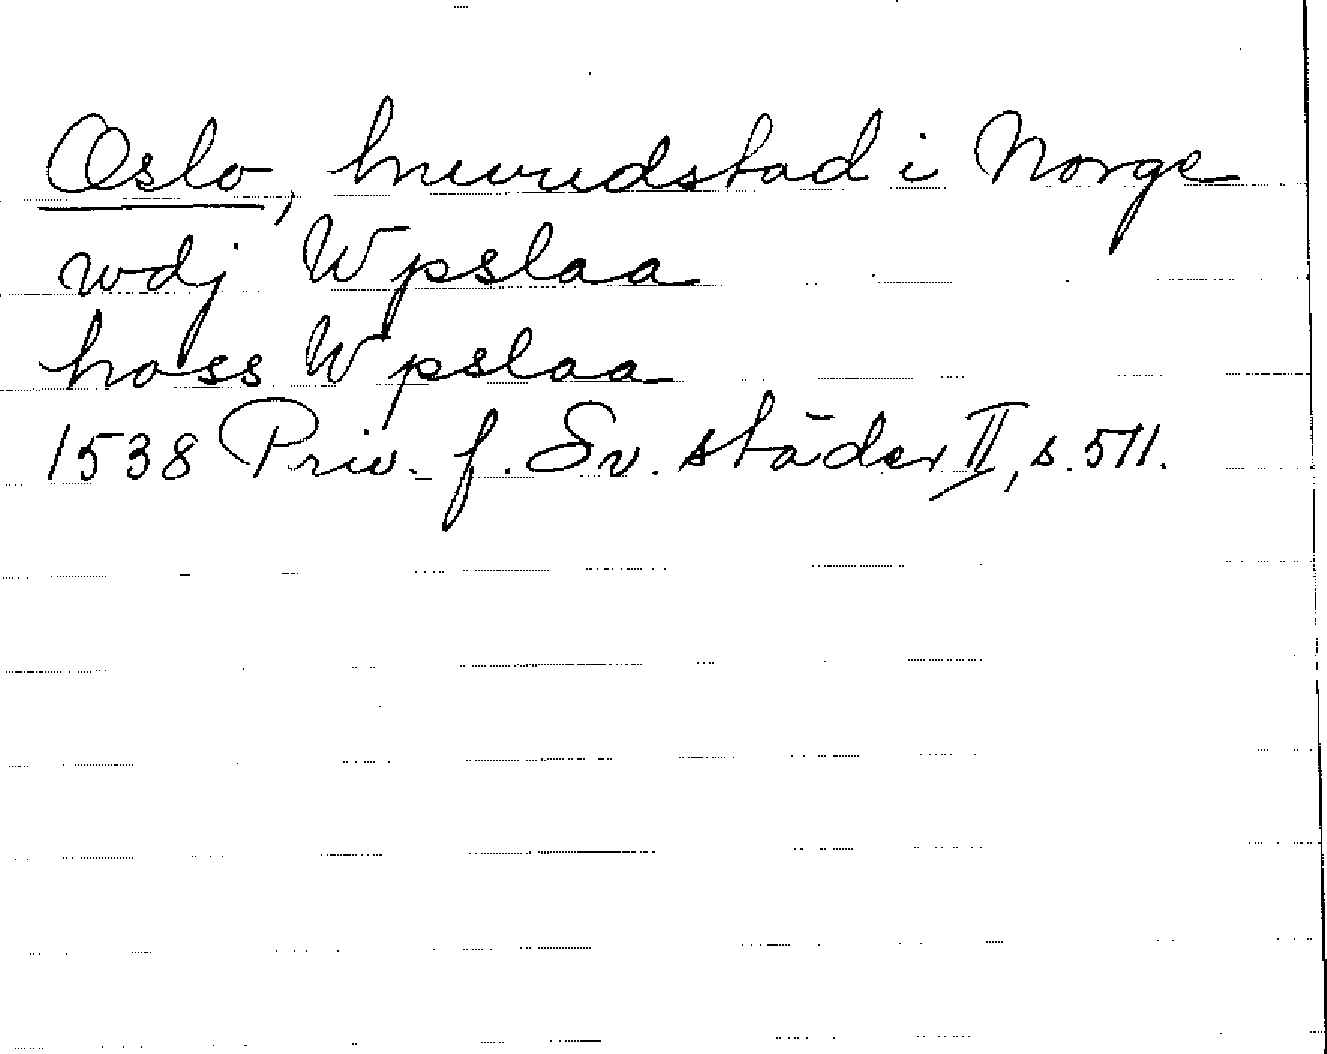 Oslo, huvudstad i Norge
wdj Wpslaa
hoss Wpslaa
1538 Priv. f. Sv. städer II, s. 511.